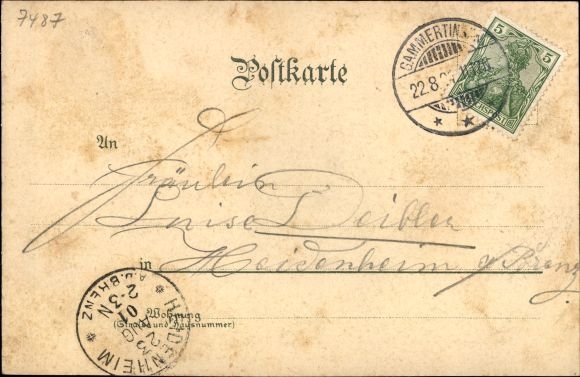 7487
GAMMERTINGEN
22.8.
5 5
Postkarte
An
Fräulein
Luise Deibler
in Heidenheim a/Brenz
Wohnung
(Straße und Hausnummer)
HEIDENHEIM
A.D.BRENZ
2-3 N
23 AUG
01